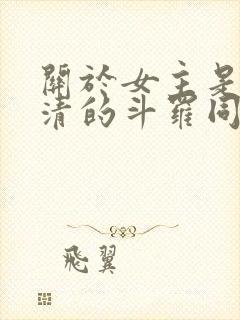 關於女主是
清的斗羅同
飛翼